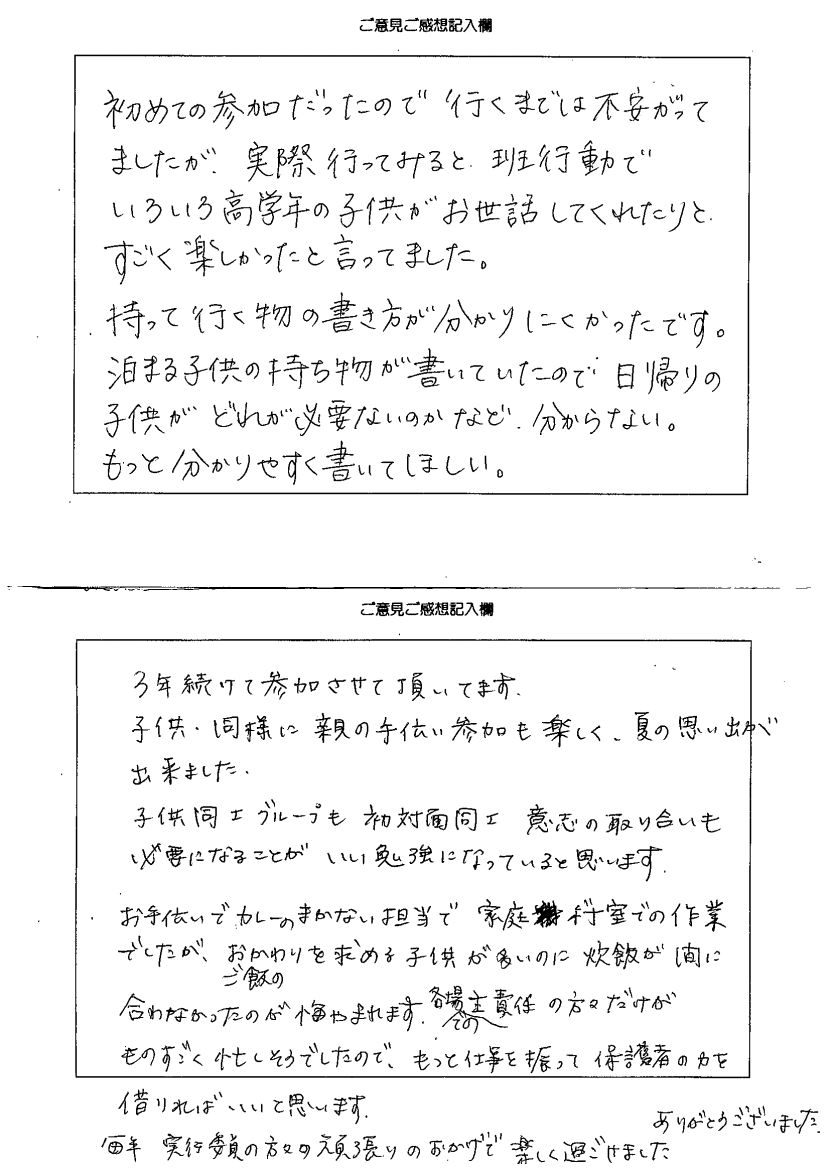 ご意見ご感想記入欄
初めての参加だったので 行くまでは不安がって
ましたが、実際行ってみると、班行動で
いろいろ高学年の子供がお世話してくれたりと、
すごく楽しかったと言ってました。
持って行く物の書き方が分かりにくかったです。
泊まる子供の持ち物が書いていたので 日帰りの
子供が どれが必要ないのか など、分からない。
もっと分かりやすく書いてほしい。
ご意見ご感想記入欄
3年続けて参加させて頂いてます。
子供、同様に 親の手伝い参加も 楽しく、夏の思い出が
出来ました。
子供同士グループも 初対面同士 意志の取り合いも
必要になることが いい勉強になっていると思います。
お手伝いでカレーのまかない担当で 家庭科室での作業
でしたが、おかわりを求める子供が多いのに 炊飯が 間に
ご飯の
合わなかったのが悔やまれます。各場主責任の方々だけが
での
ものすごく忙しそうでしたので、もっと仕事を振って 保護者の力を
借りればいいと思います。
ありがとうございました。
毎年 実行委員の方々の頑張りのおかげで 楽しく過ごせました